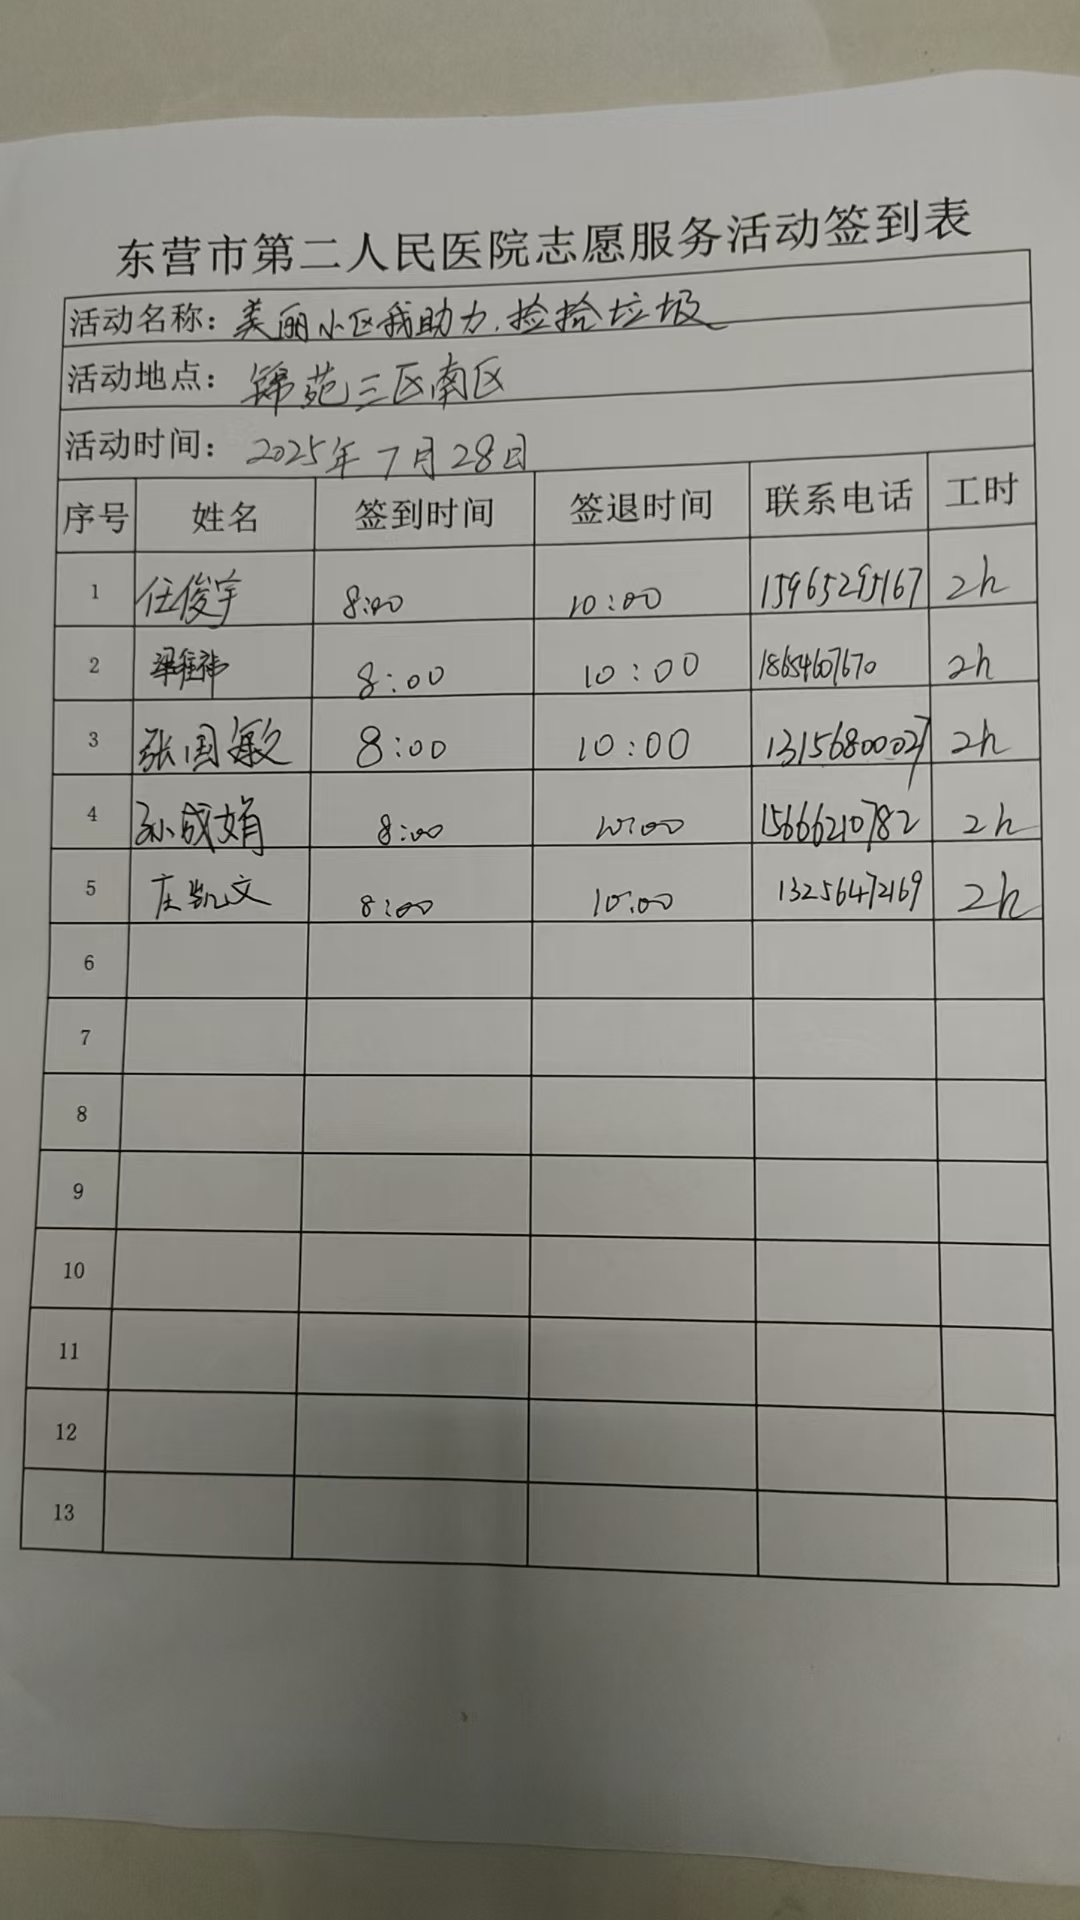 东营市第二人民医院志愿服务活动签到表
活动名称：美丽小区我助力，捡拾垃圾
活动地点：锦苑三区南区
活动时间：2025年7月28日
序号 姓名 签到时间 签退时间 联系电话 工时
1 任俊宇 8:00 10:00 15965295167 2h
2 8:00 10:00 18654607670 2h
3 张国敏 8:00 10:00 13156800027 2h
4 孙成娟 8:00 10:00 15666210782 2h
5 庄凯文 8:00 10:00 13256472169 2h
6
7
8
9
10
11
12
13